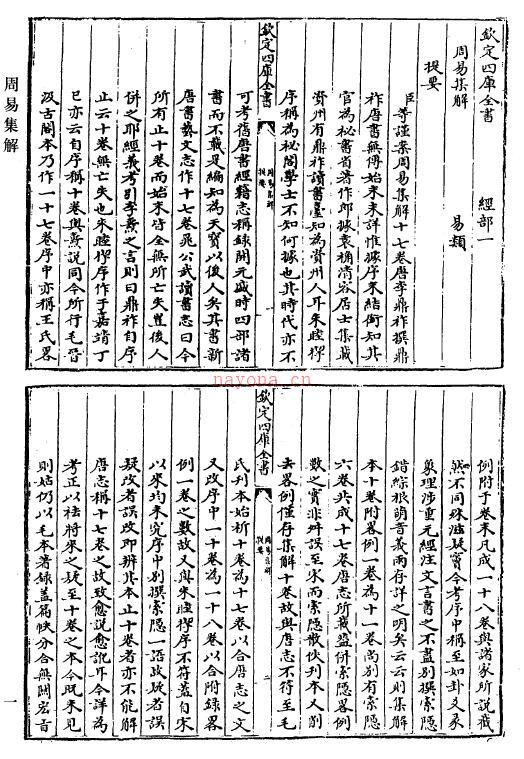 欽定四庫全書 經部一
周易集解 易類
提要
臣等謹案周易集解十七卷唐李鼎祚撰鼎
祚唐書無傳始末未詳惟據序末結銜知其
官為秘書省著作郎據袁桷清容居士集載
資州有鼎祚讀書臺知為資州人耳朱睦㮮
序稱為秘閣學士不知何據也其時代亦不
欽定四庫全書 周易集解 提要 一
可考舊唐書經籍志稱錄開元盛時四部諸
書而不載是編知為天寶以後人矣其書新
唐書藝文志作十七卷晁公武讀書志曰今
所有止十卷而始末皆全無所亡失豈後人
併之耶經義考引李燾之言則曰鼎祚自序
止云十卷無亡失也朱睦㮮序作于嘉靖丁
巳亦云自序稱十卷與燾說同今所行毛晉
汲古閣本乃作一十七卷序中亦稱王氏畧
例附于卷末凡成一十八卷與諸家所說截
然不同殊滋疑竇今考序中稱至如卦爻彖
象理涉重元經注文言書之不盡別撰索隱
錯綜根萌音義兩存詳之明矣云云則集解
本十卷附畧例一卷為十一卷尚別有索隱
六卷共成十七卷唐志所載蓋併索隱畧例
數之實非舛誤至宋而索隱散佚刊本又削
去畧例僅存集解十卷故與唐志不符至毛
欽定四庫全書 周易集解 提要 二
氏刊本始析十卷為十七卷以合唐志之文
又改序中一十卷為一十八卷以合附錄畧
例一卷之數故又與朱睦㮮序不符蓋自宋
以來均未究序中別撰索隱一語故疑者誤
疑改者誤改即辨其本止十卷者亦不能解
唐志稱十七卷之故致愈說愈訛耳今詳為
考正以袪將來之疑至十卷之本今既未見
則姑仍以毛本著錄蓋篇帙分合無關宏旨
周易集解
一
nayona.cn